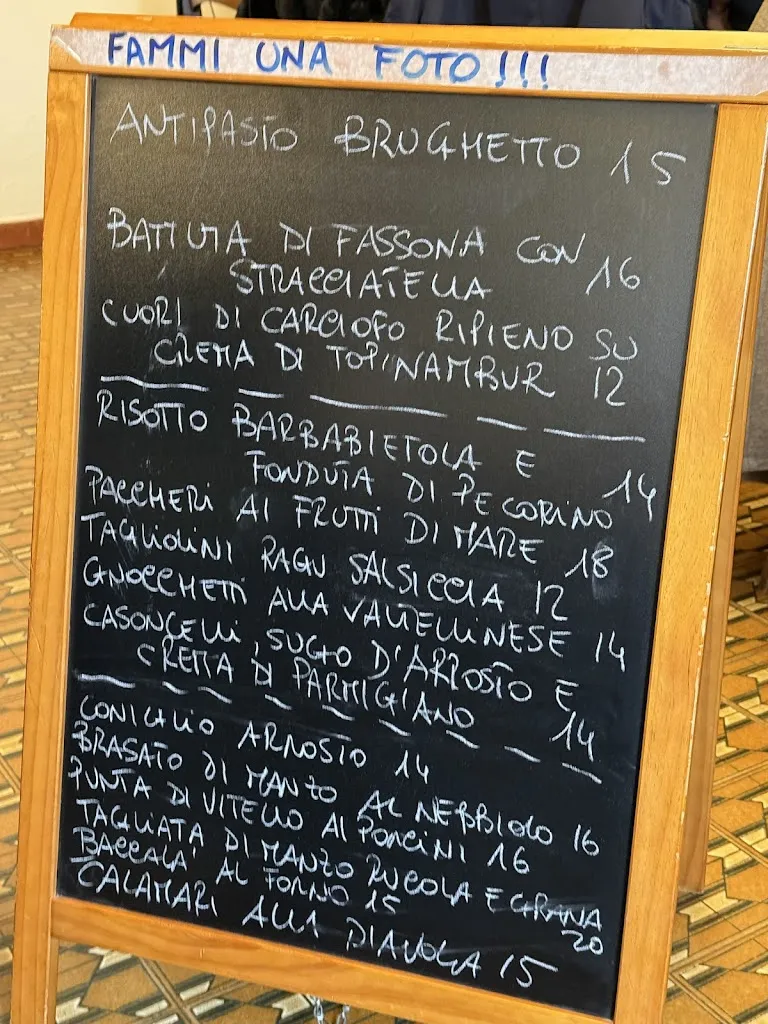 FAMMI UNA FOTO!!!
ANTIPASTO BRUGHETTO 15
BATTUTA DI FASSONA CON
STRACCIATELLA 16
CUORI DI CARCIOFO RIPIENO SU
CREMA DI TOPINAMBUR 12
RISOTTO BARBABIETOLA E
FONDUTA DI PECORINO 14
PACCHERI AI FRUTTI DI MARE 18
TAGLIOLINI RAGU SALSICCIA 12
GNOCCHETTI ALLA VALTELLINESE 14
CASONCELLI, SUGO D'ARROSTO E
CREMA DI PARMIGIANO 14
CONIGLIO ARROSTO 14
BRASATO DI MANZO AL NEBBIOLO 16
PUNTA DI VITELLO AI PORCINI 16
TAGLIATA DI MANZO RUCOLA E GRANA
20
BACCALA' AL FORNO 15
CALAMARI ALLA DIAVOLA 15